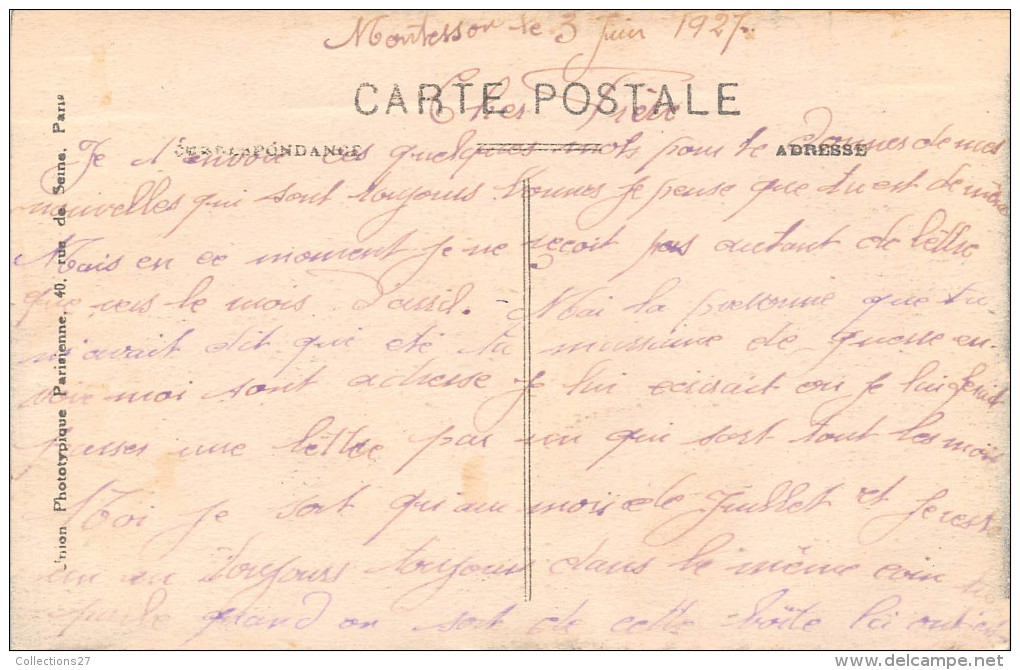 Montessor le 3 Juin 1927.
CARTE POSTALE
Cher Frère
CORRESPONDANCE
ADRESSE
Je t'envoie ces quelques mots pour te donnes de mes
nouvelles qui sont toujours bonnes je pense que tu est de même
Mais en ce moment je ne reçoit pas autant de lettre
que vers le mois d'avril. Moi la personne que tu
m'avait dit qui été ta marraine de guerre en-
voie moi sont adresse je lui écrirait ou je lui ferait
passer une lettre par un qui sort tout les mois
Moi je sort qu'au mois de Juillet et je reste
toujours toujours dans le même
quand on sort de cette boîte
Union Phototypique Parisienne, 40, rue de Seine, Paris
Collections27
delcampe.net